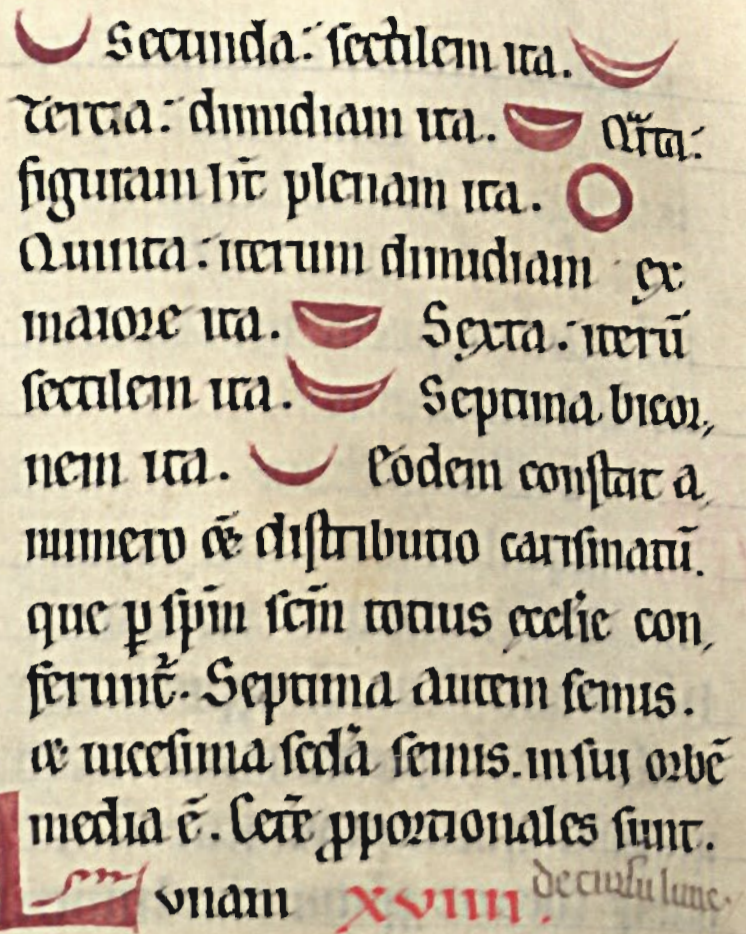 Secunda: sectilem ita.
tercia: dimidiam ita. Qrta:
figuram hr̄t plenam ita.
Quinta: iterum dimidiam ex
maiore ita. Sexta: iterū
sectilem ita. Septima bicor,
nem ita. Eodem constat a,
numero & distributio carismatū.
que p̱ sp̄m sc̄m totius ecclie con,
ferunt̄. Septima autem semis.
& uicesima scda semis. in sui orbē
media ē. Cetē pportionales sunt.
Lunam XVIIII. de cursu lune.